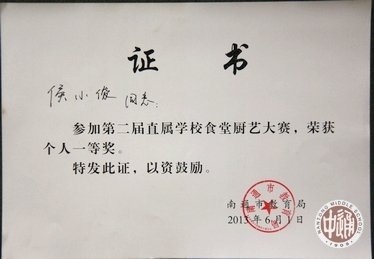 证 书
侯小俊 同志:
参加第二届直属学校食堂厨艺大赛,荣获
个人一等奖。
特发此证,以资鼓励。
南通市教育局
2013年6月1日
南通市教育局
NANTONG MIDDLE SCHOOL
1909